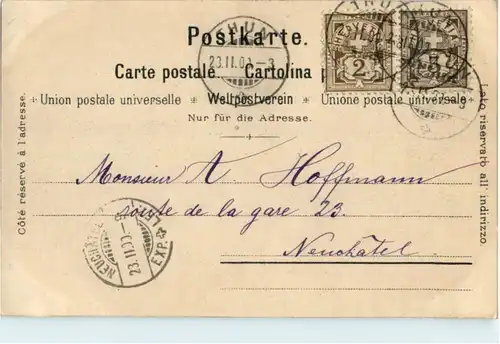 Postkarte.
Carte postale. Cartolina
Union postale universelle Weltpostverein Unione postale universale
Nur für die Adresse.
Côté réservé à l'adresse.
lato riservato all' indirizzo.
Monsieur A. Hoffmann
route de la gare 23.
Neuchâtel
THUN
23.II.00.-3
2
HELVETIA
THUN
NEUCHÂTEL
23.II.00
EXP.